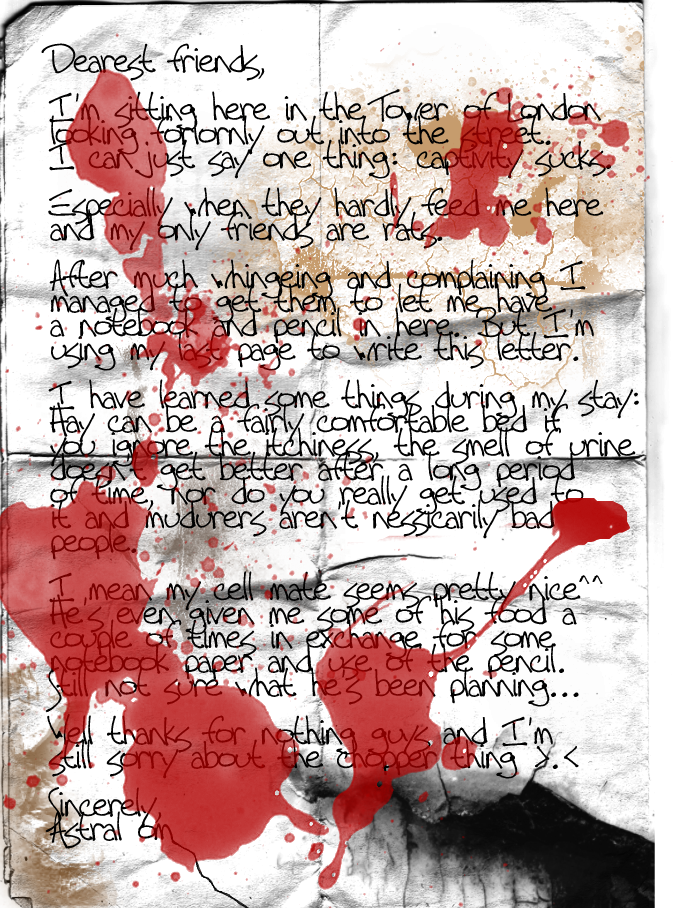 Dearest friends,
I'm sitting here in the Tower of London
looking forlornly out into the street.
I can just say one thing: captivity sucks.
Especially when they hardly feed me here
and my only friends are rats.
After much whingeing and complaining I
managed to get them to let me have
a notebook and pencil in here. But I'm
using my last page to write this letter.
I have learned some things during my stay:
Hay can be a fairly comfortable bed if
you ignore the itchiness, the smell of urine
doesn't get better after a long period
of time, nor do you really get used to
it and mudurers aren't nessicarily bad
people.
I mean my cell mate seems pretty nice^^
He's even given me some of his food a
couple of times in exchange for some
notebook paper and use of the pencil.
Still not sure what he's been planning...
Well thanks for nothing guys and I'm
still sorry about the chopper thing >.<
Sincerely,
Astral Om